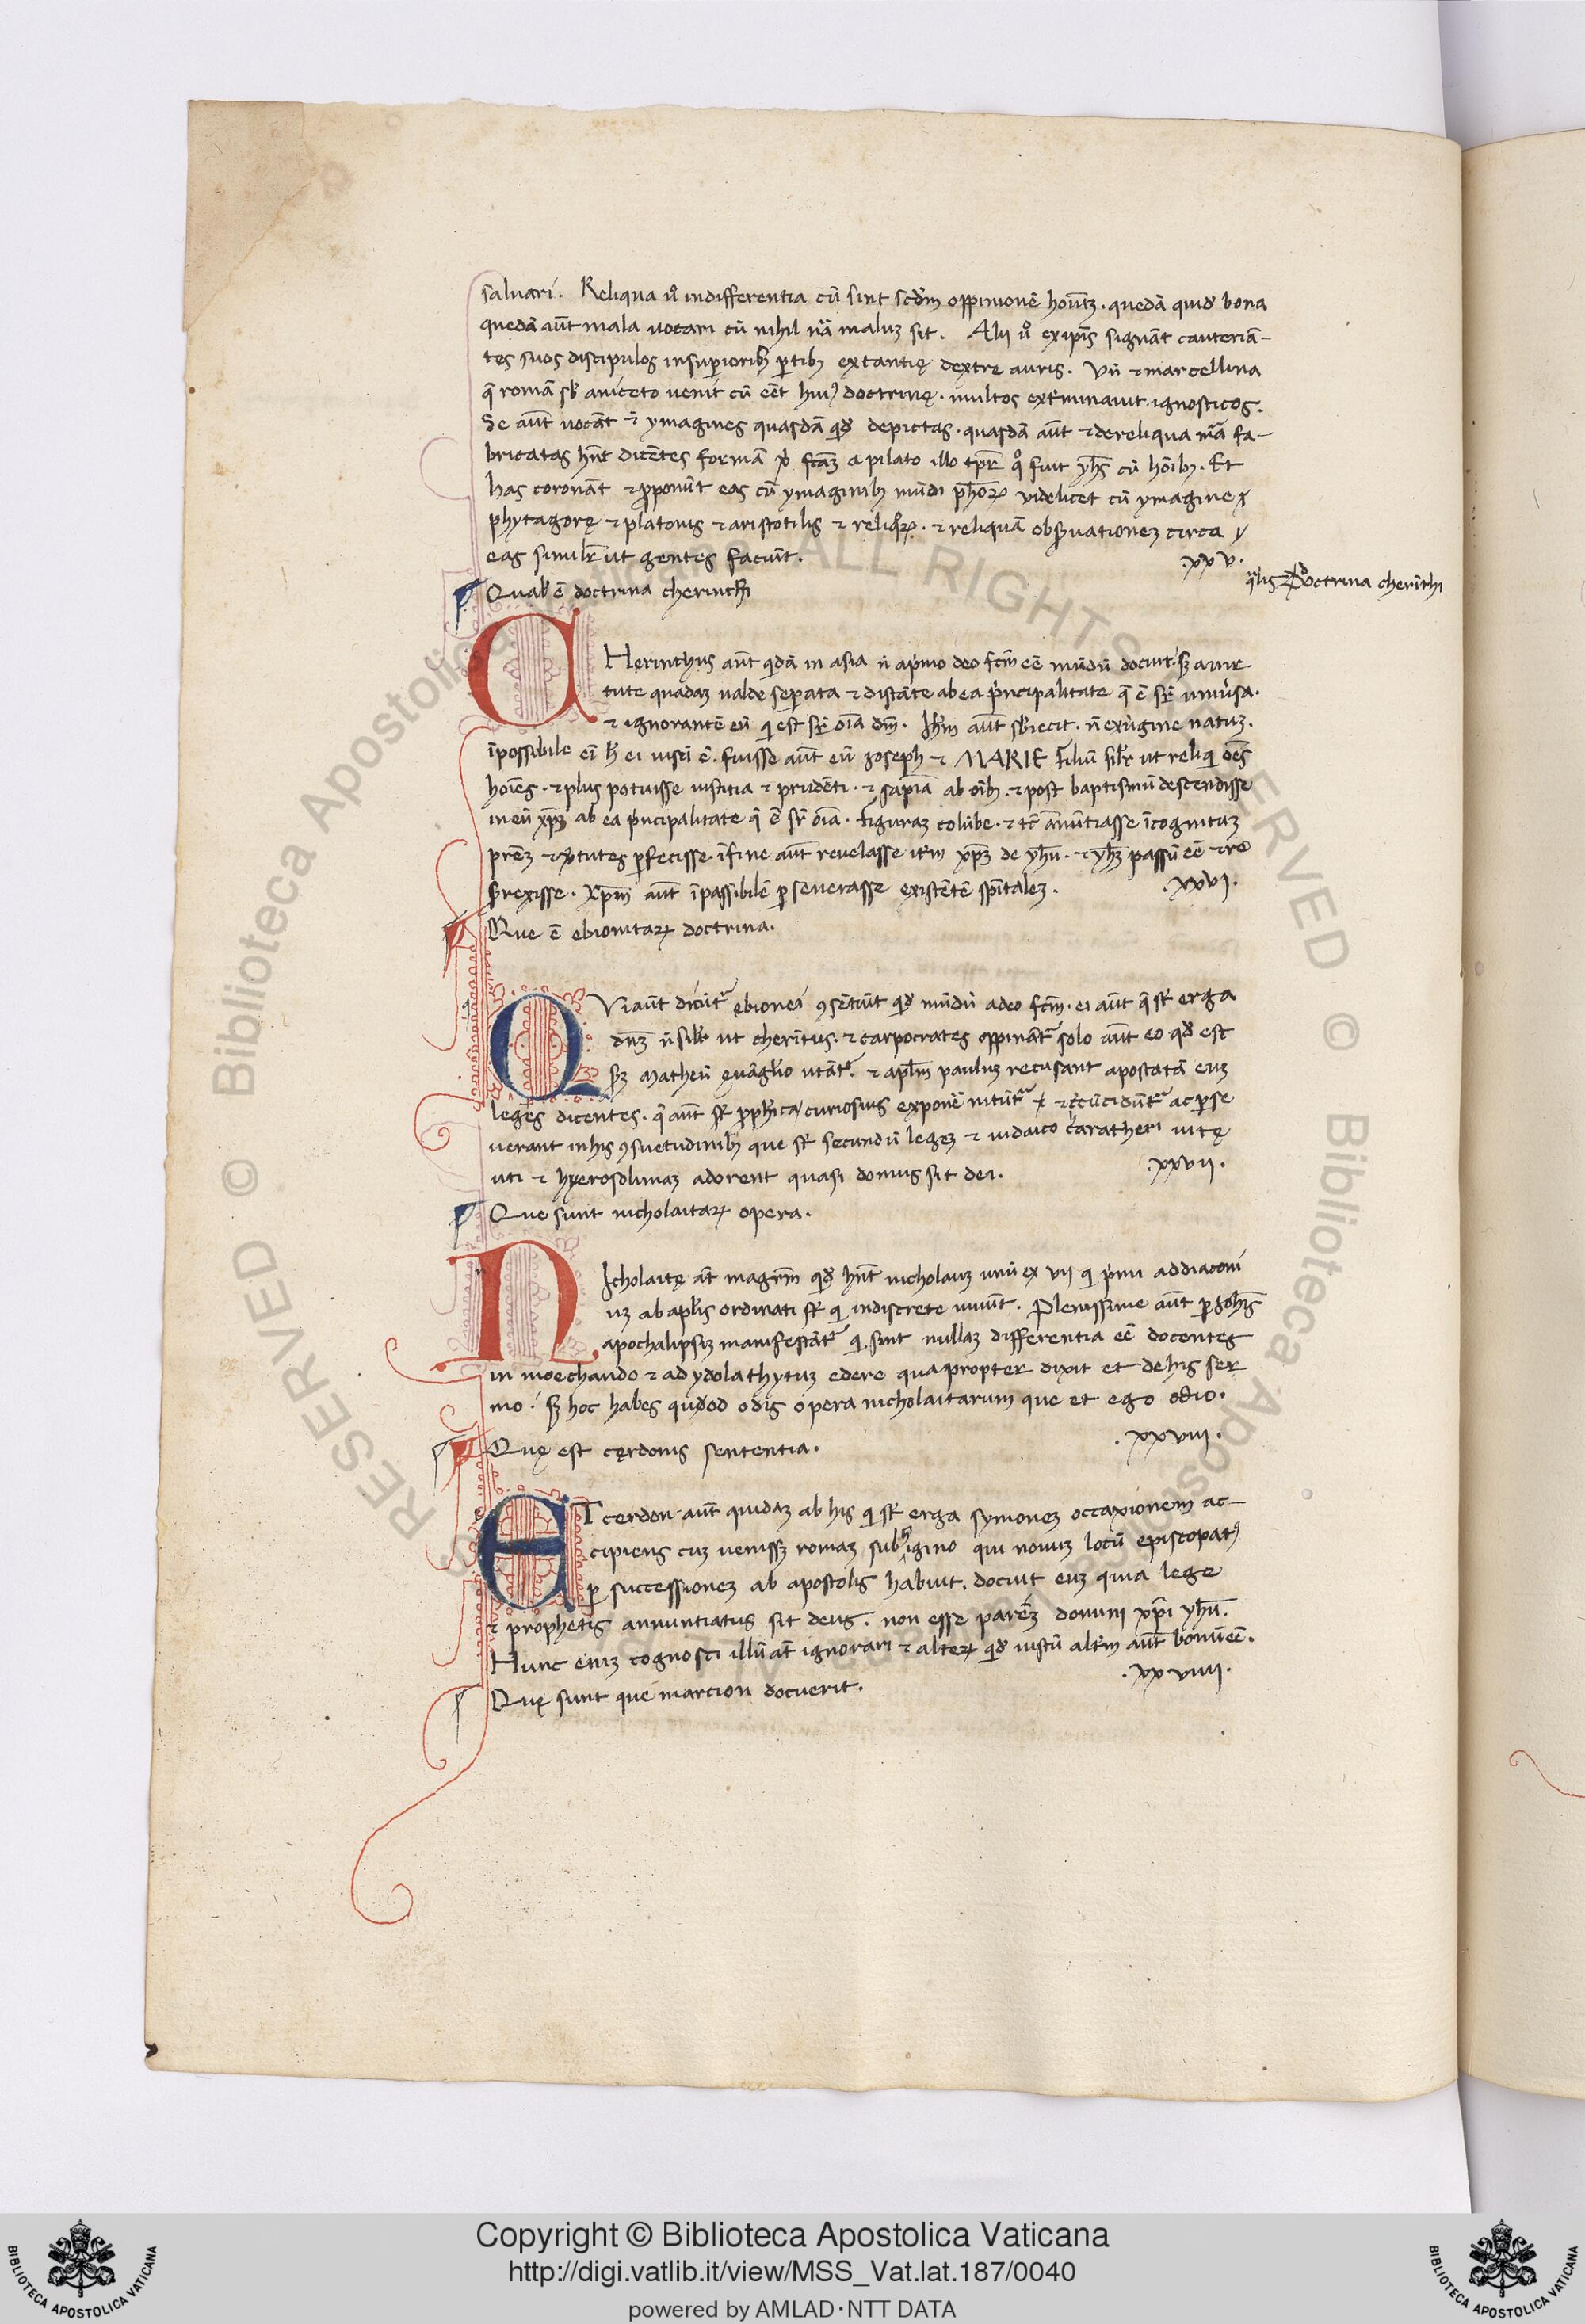 saluari. Reliqua ů indifferentia cū sint scdm̄ oppinionē hoīuȝ. quedā quid̄ bona
quedā aūt mala uocari cū nihil nā̄ maluȝ sit. Alii ů ex ip̄is signāt cauteriā-
tes suos discipulos in suꝑiorib; ꝑtib; extantię dextrę auris. Vn̄ ⁊ marcellina
q̄ romā sb̄ aniceto uenit cū eēt hui⁹ doctrinę. multos ext̓minauit. ignosticos.
Se aūt uocāt ⁊ ymagines quasdā qid̄ depictas. quasdā aūt ⁊ de reliqua mā̄ fa-
bricatas hn̄t dicētes formā xp̄i fcām a pilato illo tp̄r qͦ fuit yhs̄ cū hoīb;. Et
has coronāt ⁊ ꝓponūt eas cū ymaginib; mūdi ph̄oꝝ videlicet cū ymagine
phytagorę ⁊ platonis ⁊ aristotilis ⁊ reliqoꝝ. ⁊ reliquā obẜuationeȝ circa
eas similr̄ ut gentes faciūt.
.xxv.
q̄lis doctrina cherīthi
Qualis ē doctrina cherinthi
CHerinthus aūt qidā in asia n̄ a p̓mo deo fcm̄ eē mūdū docuit. sȝ a uir
tute quadaȝ ualde seperata ⁊ distāte ab ea p̓ncipalitate q̄ ē sr̄ uniu̓sa.
⁊ ignorantē eū qi est sr̄ oīa dm̄. Ihm̄ aūt sb̓iecit. n̄ ex u̓gine natuȝ.
īpossibile eī h̄ ei uisū ē. fuisse aūt eū Joseph ⁊ MARIE filiū silr̄ ut reliqi oēs
hoīes. ⁊ plus potuisse iustitia ⁊ prudēti. ⁊ sapīa ab oīb;. ⁊ post baptismū descendisse
in eū xp̄ȝ ab ea p̓ncipalitate q̄ ē sr̄ oīa. figuraȝ colūbe. ⁊ tc̄ annūtiasse īcognituȝ
pr̄eȝ ⁊ v̓tutes ꝑfecisse. ī fine aūt reuelasse itm̄ xp̄ȝ de yhū. ⁊ yhȝ passū eē ⁊ re
surexisse. Xp̄m aūt īpassibilē ꝑseuerasse existētē sp̄italeȝ.
.xxvi.
Que ē ebionitaꝝ doctrina.
QVi aūt dicūt᷑ ebionei ꝯsētiūt qd̄ mūdū a deo fcm̄. ei aūt q̄ st̄ erga
dn̄ȝ n̄ silr̄ ut cherītus. ⁊ carpocrates oppinant᷑ solo aūt eo qd̄ est
sȝ matheū ęuāglio utāt᷑. ⁊ apl̄m pauluȝ recusant apostatā euȝ
legis dicentes. q̄ aūt st̄ ꝓph̄ica curiosius exponē nitūt᷑ ⁊ c̓cūcidūt᷑ ac ꝑse
uerant in his ꝯsuetudinib; que st̄ secundū legeȝ ⁊ iudaico caratheri uitę
uti ⁊ hyerosolimaȝ adorent quasi domus sit dei.
.xxvii.
Que sunt nicholaitaꝝ opera.
NIcholaitę āt magr̄m qid̄ hn̄t nicholauȝ unū ex vii qi p̓mi ad diaconi
uȝ ab apl̄is ordinati st̄ qi indiscrete uiuūt. Plenissime aūt ꝑ Johīs
apochalipsiȝ manifestāt᷑ qi sint nullaȝ differentia eē docentes
in moechando ⁊ ad ydolathytuȝ edere quapropter dixit et de his ser
mo. sȝ hoc habes quod odis opera nicholaitarum que et ego odio.
.xxviii.
Quę est cędonis sententia.
ET cerdon aūt quidaȝ ab his qi st̄ erga symoneȝ occaxionem ac-
cipiens cuȝ uenissȝ romaȝ sub higino qui nonuȝ locū episcopat⁹
ꝑ successioneȝ ab apostolis habuit. docuit euȝ quia lege
⁊ prophetis annuntiatus sit deus. non esse patrēȝ domini xp̄i yhū.
Hunc eniȝ cognosci illū āt ignorari ⁊ alteꝝ qid̄ iustū alt̓m aūt bonū eē.
.xxviiii.
Quę sunt que marcion docuerit.
Copyright © Biblioteca Apostolica Vaticana
http://digi.vatlib.it/view/MSS_Vat.lat.187/0040
powered by AMLAD·NTT DATA